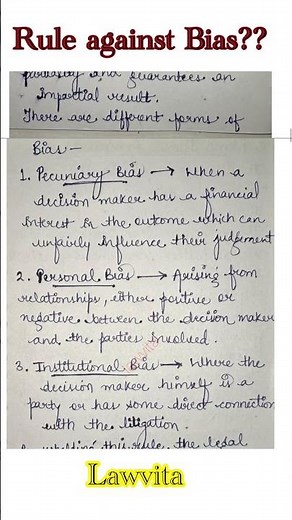 Rule against Bias??
partiality and guarantees an
impartial result.
There are different forms of
Bias -
1. Pecuniary Bias → When a
decision maker has a financial
interest in the outcome which can
unfairly influence their judgement
2. Personal Bias → Arising from
relationships, either positive or
negative between the decision maker
and the parties involved.
3. Institutional Bias → Where the
decision maker himself is a
party or has some direct connection
with the litigation.
this rule, the legal
Lawvita